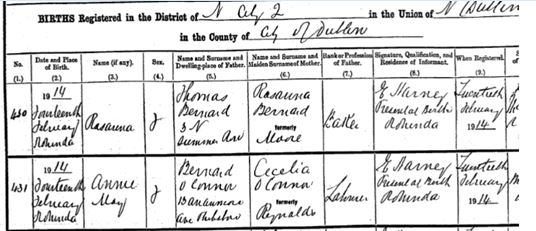 BIRTHS Registered in the District of N City 2 in the Union of N Dublin
in the County of City of Dublin
No. Date and Place of Birth. Name (if any). Sex. Name and Surname and Dwelling-place of Father. Name and Surname and Maiden Surname of Mother. Rank or Profession of Father. Signature, Qualification, and Residence of Informant. When Registered.
(1.) (2.) (3.) (4.) (5.) (6.) (7.) (8.) (9.)
430 1914 Fourteenth February Rotunda Rasanna f Thomas Bernard 3 N Summer Rasanna Bernard formerly Moore E Harney Present at Birth Rotunda Twentieth February 1914
431 1914 Fourteenth February Rotunda Annie May f Bernard O Connor Cecelia O Connor formerly Reynolds Labourer E Harney Present at Birth Rotunda Twentieth February 1914